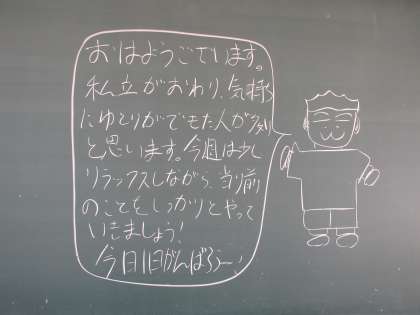 おはようございます。
私立がおわり、気持ち
にゆとりがでもた人が多い
と思います。今週は少し
リラックスしながら、当り前
のことをしっかりとやって
いきましょう！
今日1日がんばろう〜！